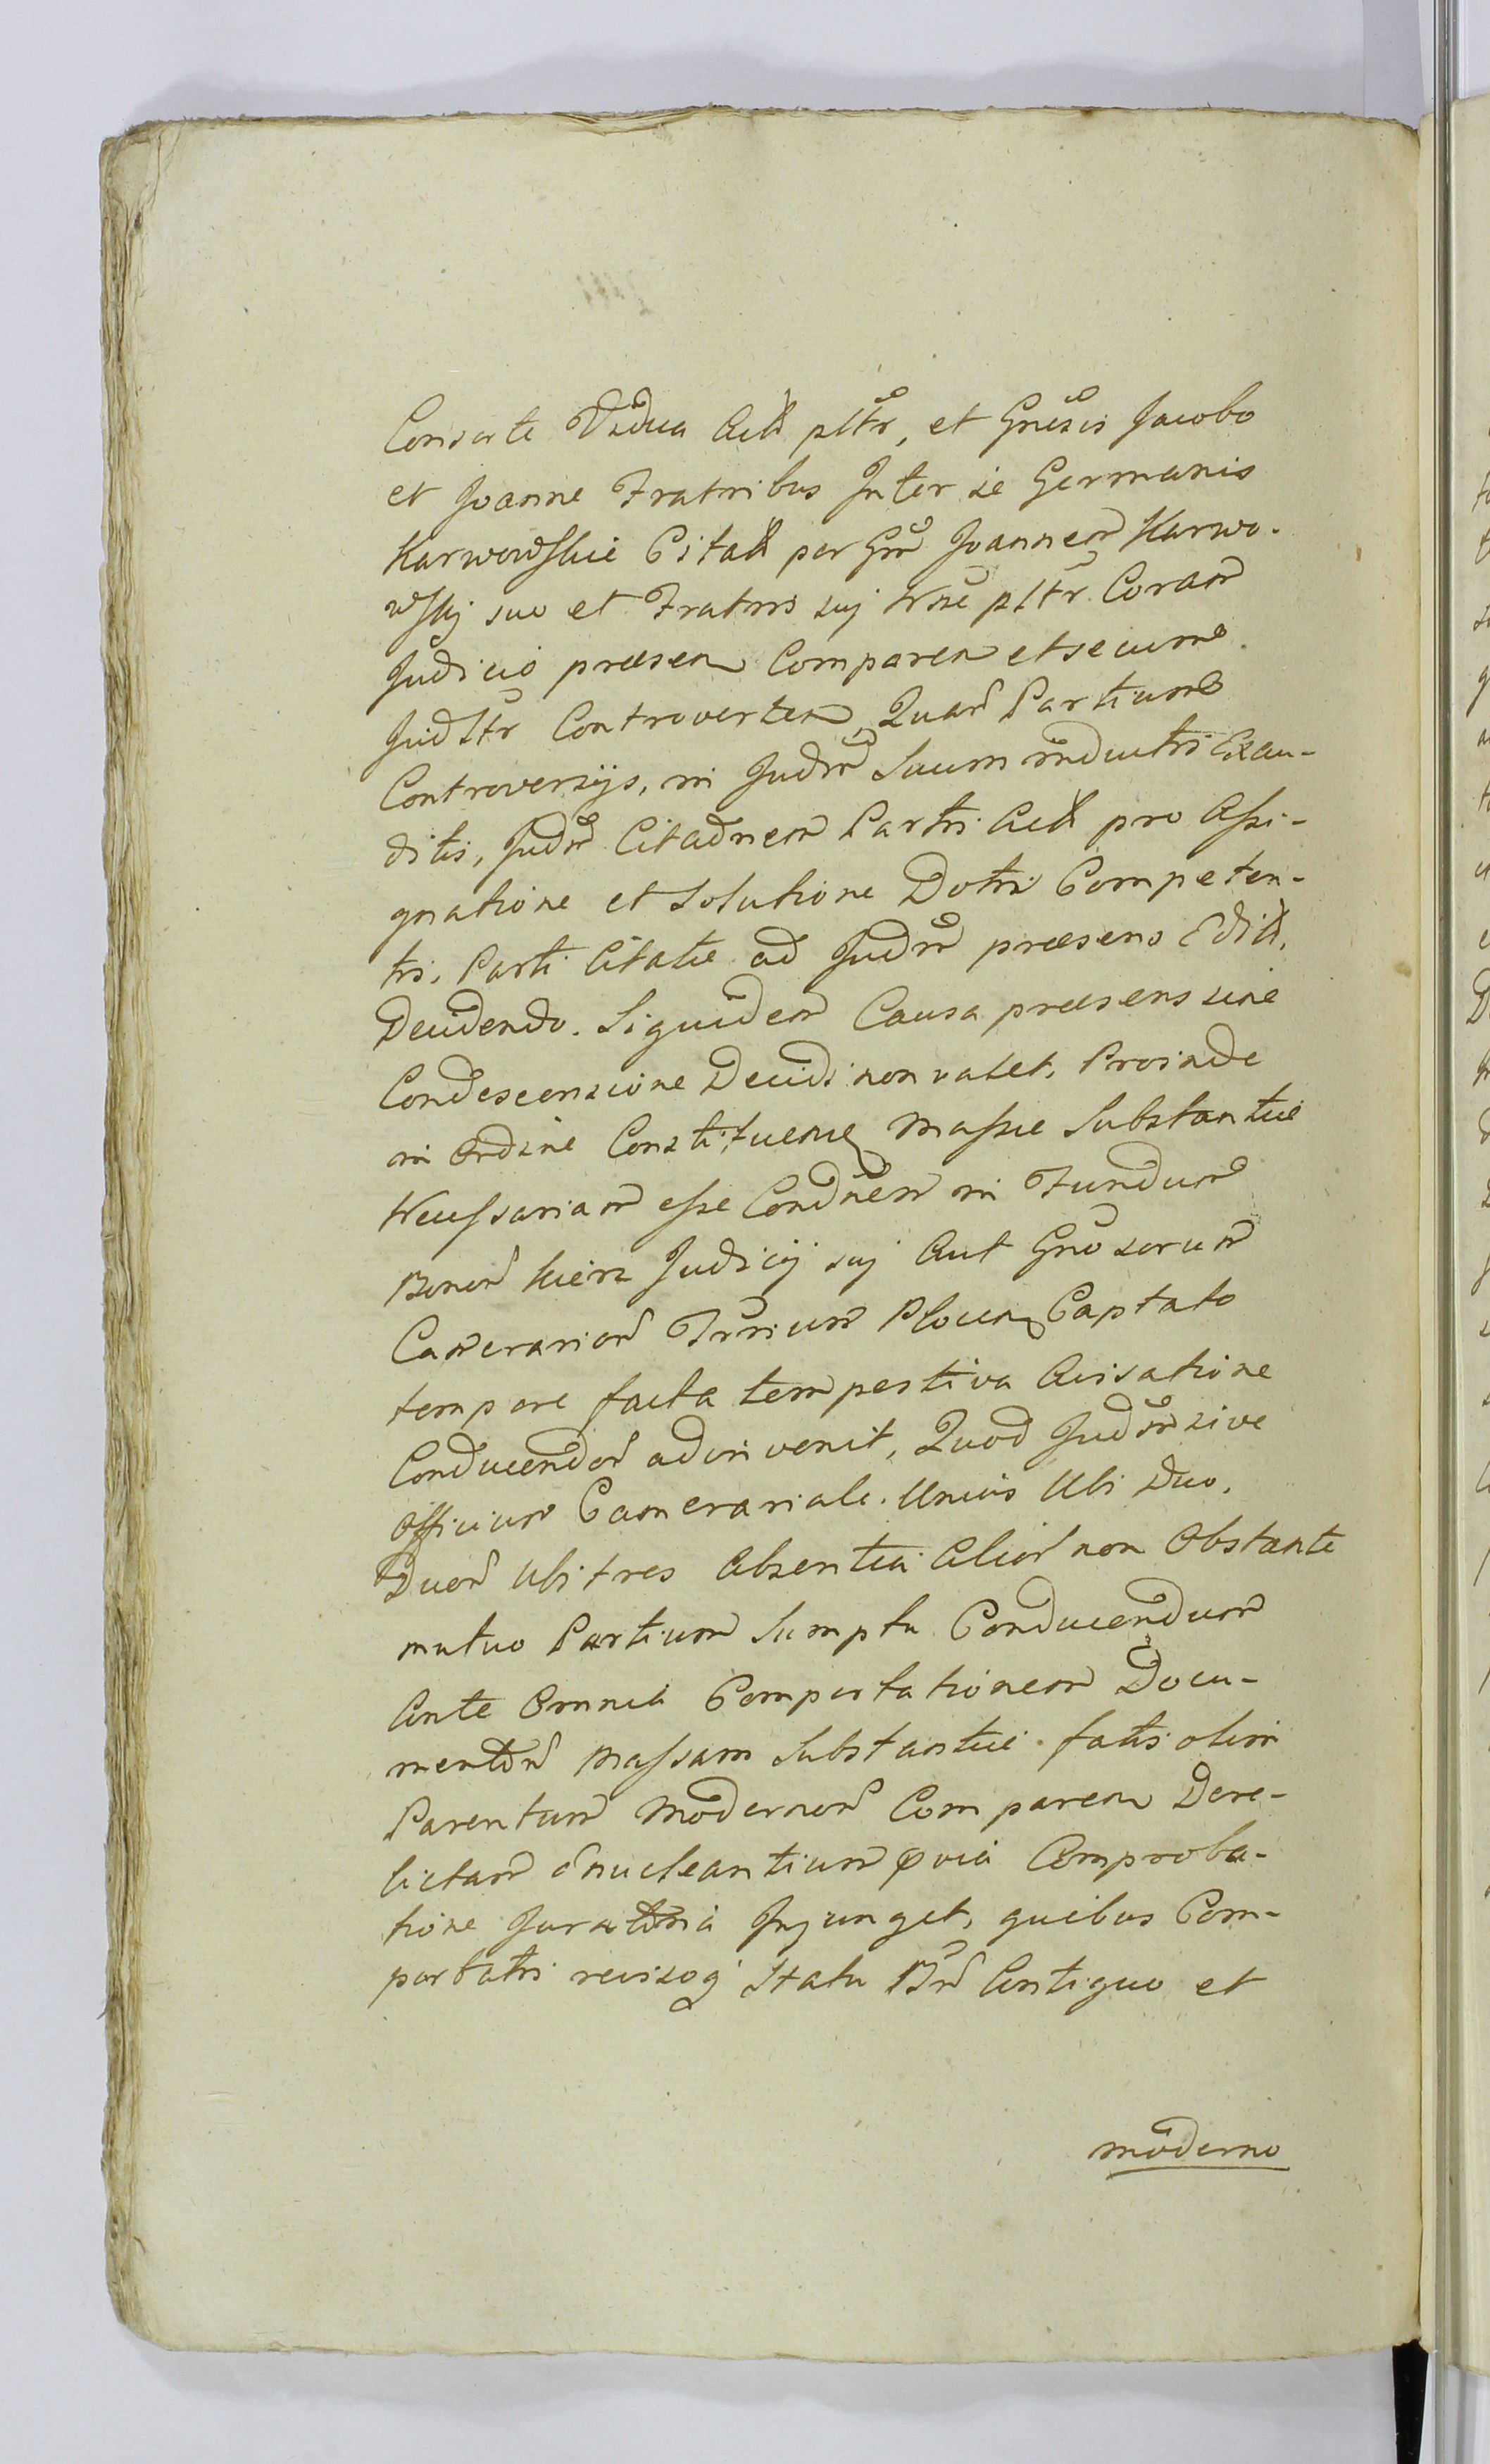 Consorte Vidua Act pltr, et Gnesis Jacobo
et Joanne Fratribus Inter se Germanis
Karwowskie Citat per Gm Joannem Karwo-
wskij suo et Fratris suj Nne pltr Coram
Judicio praesen Comparen et secum
Judltr Controverten, Quar Partium
Controversijs, in Judm Suum inductis Exau-
ditis, Judm Citaonem Partis Act pro Assi-
gnatione et Solutione Dotis Competen-
tis, Parti Citatae ad Judm praesens Edit,
Decidendo. Siquidem Causa praesens sine
Condescensione Decidi non valet, Proinde
in ordine Constituenę Massae Substantiae
Necessariam esse Condnem in Fundum
Bonor huien Judicij suj Aut Gnosorum
Camerarior Trrium Plocen Captato
tempore facta tempestiva Avisatione
Conducendor adinvenit, Quod Judm sive
Officium Camerariale. Unius Ubi Duo,
Duor Ubi tres Absentia Alior non Obstante
mutuo Partium Sumptu Conducendum
Ante Omnia Comportationem Docu-
mentor Massam Substantiae fatis olim
Parentum Modernor Comparen Dere-
lictam enucleantium qvia Comproba-
tione Juratoria Injunget, quibus Com-
portatis revisoq Statu Bnr Antiquo et
moderno